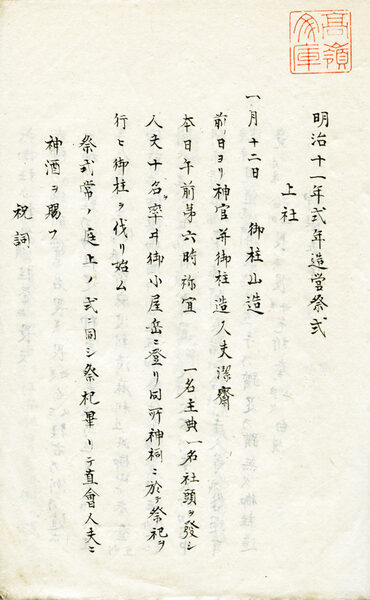 高嶺文庫
明治十一年式年造営祭式
上社
一月十二日　御柱山造
前日ヨリ神官并御柱造人夫潔齋
本日午前第六時祢宜一名主典一名社頭ヲ發シ
人夫十名率ヰ御小屋岳ニ登リ同所神祠ニ於テ祭祀ヲ
行ヒ御柱ヲ伐リ始ム
祭式常ノ庭上ノ式ニ同シ祭祀畢リテ直會人夫ニ
神酒ヲ賜フ
祝詞